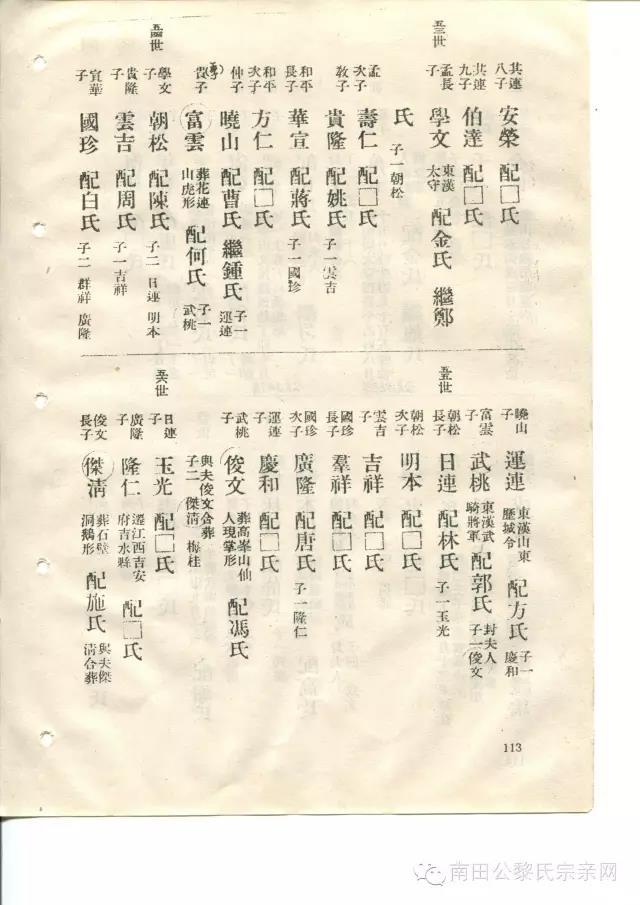 五三世
其連八子 安榮 配□氏
其連九子 伯達 配□氏
孟長子 學文 東漢太守 配金氏 繼鄭
氏 子一朝松
孟次子 壽仁 配□氏
敦子 貴隆 配姚氏 子一雲吉
和平長子 華宣 配蔣氏 子一國珍
和平次子 方仁 配□氏
仲子 曉山 配曹氏 繼鍾氏 子一運連
富雲 葬花連山虎形 配何氏 子一武桃
五四世
學文子 朝松 配陳氏 子二 日連 明本
貴隆子 雲吉 配周氏 子一吉祥
宣華子 國珍 配白氏 子二 群祥 廣隆
五五世
曉山子 運連 東漢山東歷城令 配方氏 子一慶和
富雲子 武桃 東漢武騎將軍 配郭氏 封夫人 子一俊文
朝松長子 日連 配林氏 子一玉光
朝松次子 明本 配□氏
雲吉子 吉祥 配□氏
國珍長子 羣祥 配□氏
國珍次子 廣隆 配唐氏 子一隆仁
運連子 慶和 配□氏
武桃子 俊文 葬高峯山仙人現掌形 配馮氏
與夫俊文合葬 子二 傑清 梅桂
五六世
日連子 玉光 配□氏
廣隆子 隆仁 遷江西吉安府吉水縣 配□氏
俊文長子 傑清 葬石壁洞鵝形 配施氏 與夫傑清合葬
113
南田公黎氏宗亲网